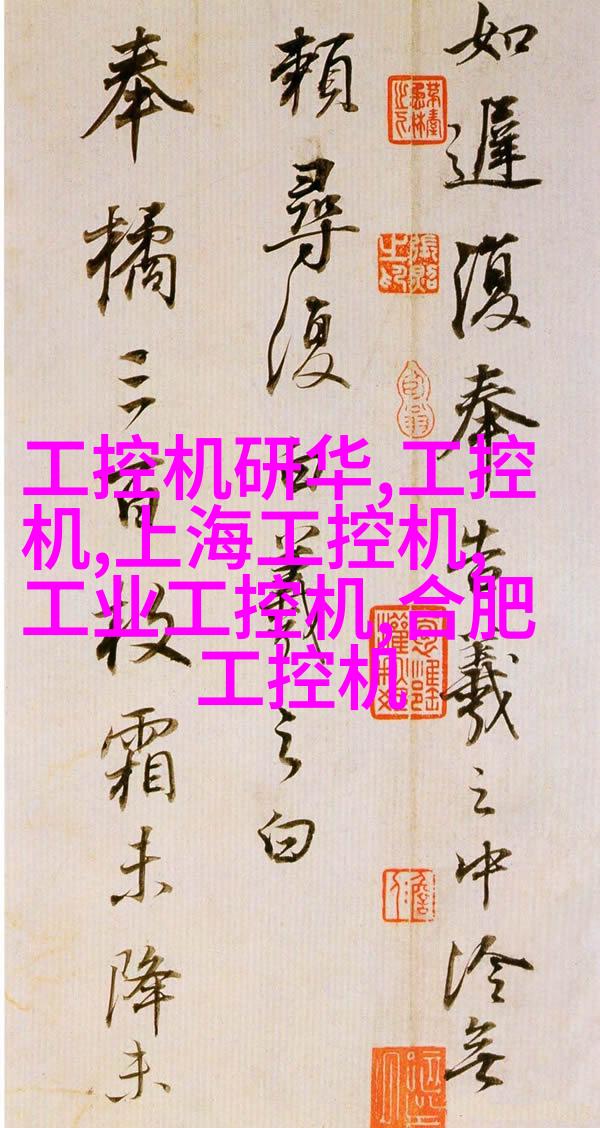 如遲復奉告羲之中冷無
賴尋復白羲之白
奉橘三百枚霜未降未
工控机研华,工控
机,上海工控机,
工业工控机,合肥
工控机